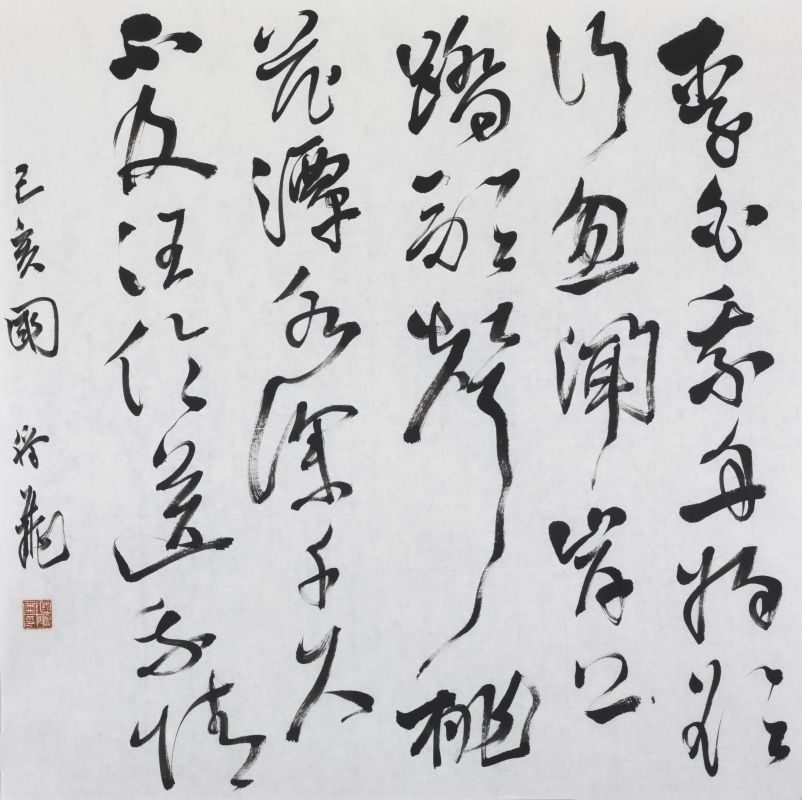 李白乘舟将欲
行忽聞岸上
踏歌聲桃
花潭水深千尺
不及汪倫送我情
己亥國